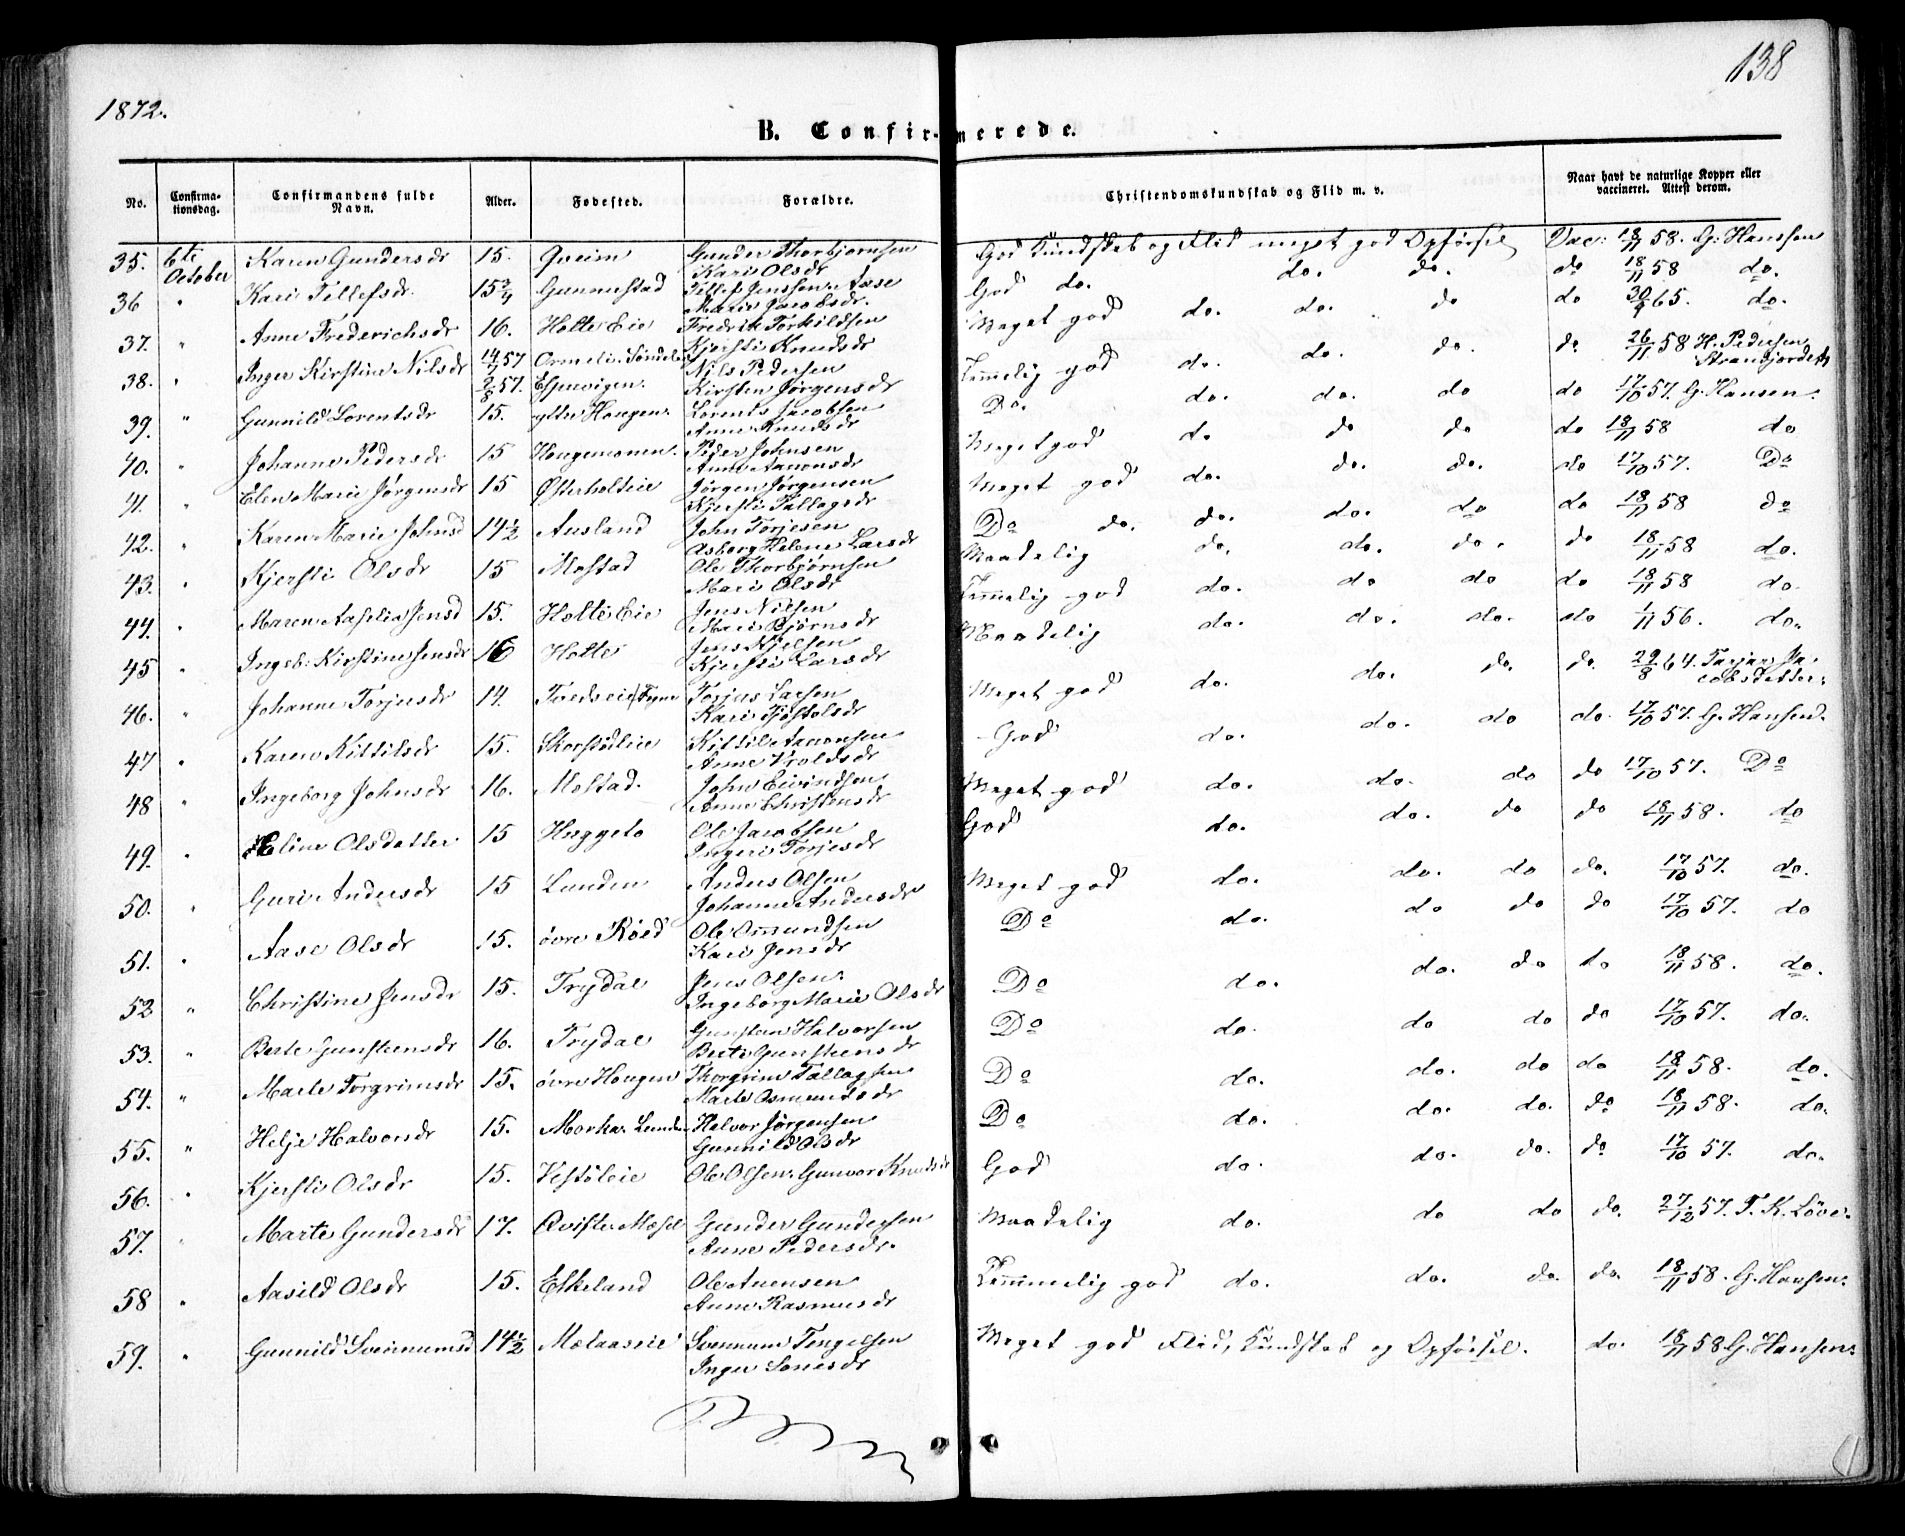 138
1872.
B. Confirmerede.
No. Confirmationsdag. Confirmandens fulde Navn. Alder. Fødested. Forældre. Christendomskundskab og Flid m. v. Naar havt de naturlige Kopper eller vaccineret. Attest derom.
35. 6te October Karen Gundersdr 15. Qveim Gunder Thorbjørnsen God Kundskab og Flid meget god Opførsel Vac: 18/11 58. G. Hanssen
Kari Olsdr
36 " Kari Tellefsdr. 15 3/4 Gunnestad Tellef Jenssen Aase God do. do. do. do 18/11 58 do.
Maria Jacobsdr.
37. " Anne Frederichsdr 16. Holte Eie Fredrik Torkildsen Meget god do. do. do do 30/9 65. do.
Kjersti Knudsdr
38. " Inger Kirstine Nilsdr 14/7 57 Søndeled Nils Pedersen Temmelig god do. do. do. do 26/11 58 H. Pedersen
2/8 57. Espevigen. Kirsten Jørgensdr
39. " Gunnild Lorentsdr 15. ytre Hougen Lorents Jacobsen Do. do. do. do do 17/10 57. G. Hansen.
Anne Knudsdr
40. " Johanne Pedersdr 15 Hougemonen. Peder Johnsen Meget god do do do do 18/11 58 do
Anne Aanonsdr
41. " Elen Marie Jørgensdr 15 Østerholteie Jørgen Jørgensen Meget god do. do. do. do 17/10 57. Do
Kjersti Tallagsdr
42. " Karen Marie Johnsd 14 1/2 Ausland John Torjesen Do do. do. do. do do 18/11 58 do
Asborg Helene Larsdr
43. " Kjersti Olsdr 15 Mostad Ole Thorbjørnsen Maadelig do. do. do. do 18/11 58 do.
Mari Olsdr
44. " Maren Aaslie Jensd 15. Holte Eie Jens Nilsen Temmelig god do. do do do 18/11 58 do.
Mari Bjørnsdr
45 " Ingeb. Kirstine Jensdr 16 Holte Jens Kjelsen Maadelig do. do. do. do 1/11 56. do.
Kjersti Larsdr
46. " Johanne Torjusdr 14. Torjus Larsen Meget god do. do. do. do. 29/8 64. Torjer Jacobsdatter.
Kari Tjøstolsdr
47 " Karen Kittilsdr 15. Skorstøleie Kittil Aanonsen God do. do. do do. 17/10 57. G. Hansen.
Anne Vroldsdr
48 " Ingeborg Johnsdr 16. Mostad. John Eivindsen Meget god do. do. do do 17/10 57. Do
Anne Christensdr
49. " Eline Olsdatter 15 Huggeto Ole Jacobsen God do. do. do do 18/11 58. do
Ingeri Torjesdr
50. " Guri Andersdr 15 Lunden Anders Olsen Meget god do. do. do do. 17/10 57. do.
Johanne Andersdr
51. " Aase Olsdr 15. øvre Røed Ole Omundsen Do do. do do do 17/10 57. do
Kari Jensdr
52 " Christine Jensdr 15. Trydal Jens Olsen. Do do. do. do do 18/11 58. do.
Ingeborg Marie Olsdr
53. " Berte Gunsteensdr 16. Trydal Gunsten Halvorsen Do do. do do do 17/10 57. do.
Berte Gunsteensdr
54. " Marte Torgrimsdr 15. øvre Hougen Thorgrim Tallagsen Do do. do. do do 18/11 58. do.
Marte Osmundsdr
55. " Helje Halvorsdr 15. Morka. Lunden Halvor Jørgensen Do do. do. do. do 18/11 58. do.
Gunnild Olsdr
56. " Kjersti Olsdr 15. Vestøleie Ole Olsen. Gunvor Knudsdr God do. do. do. do 17/10 57. do.
57. " Marte Gundersdr 17. Qviste Mosen Gunder Gundersen Maadelig do. do do do. 27/12 57. T. K. Løve.
Anne Pedersdr.
58 " Aasild Olsdr 15. Eskeland Ole Anensen Temmelig god do. do. do. do. 18/11 58. G. Hansen.
Anne Rasmusdr
59. " Gunnild Svennumsd 14 1/2 Mælaaseie Svennum Tengelsen Meget god Flid, Kundskab og Opførsel. do. 18/11 58 G. Hansen.
Inger Sonesdr